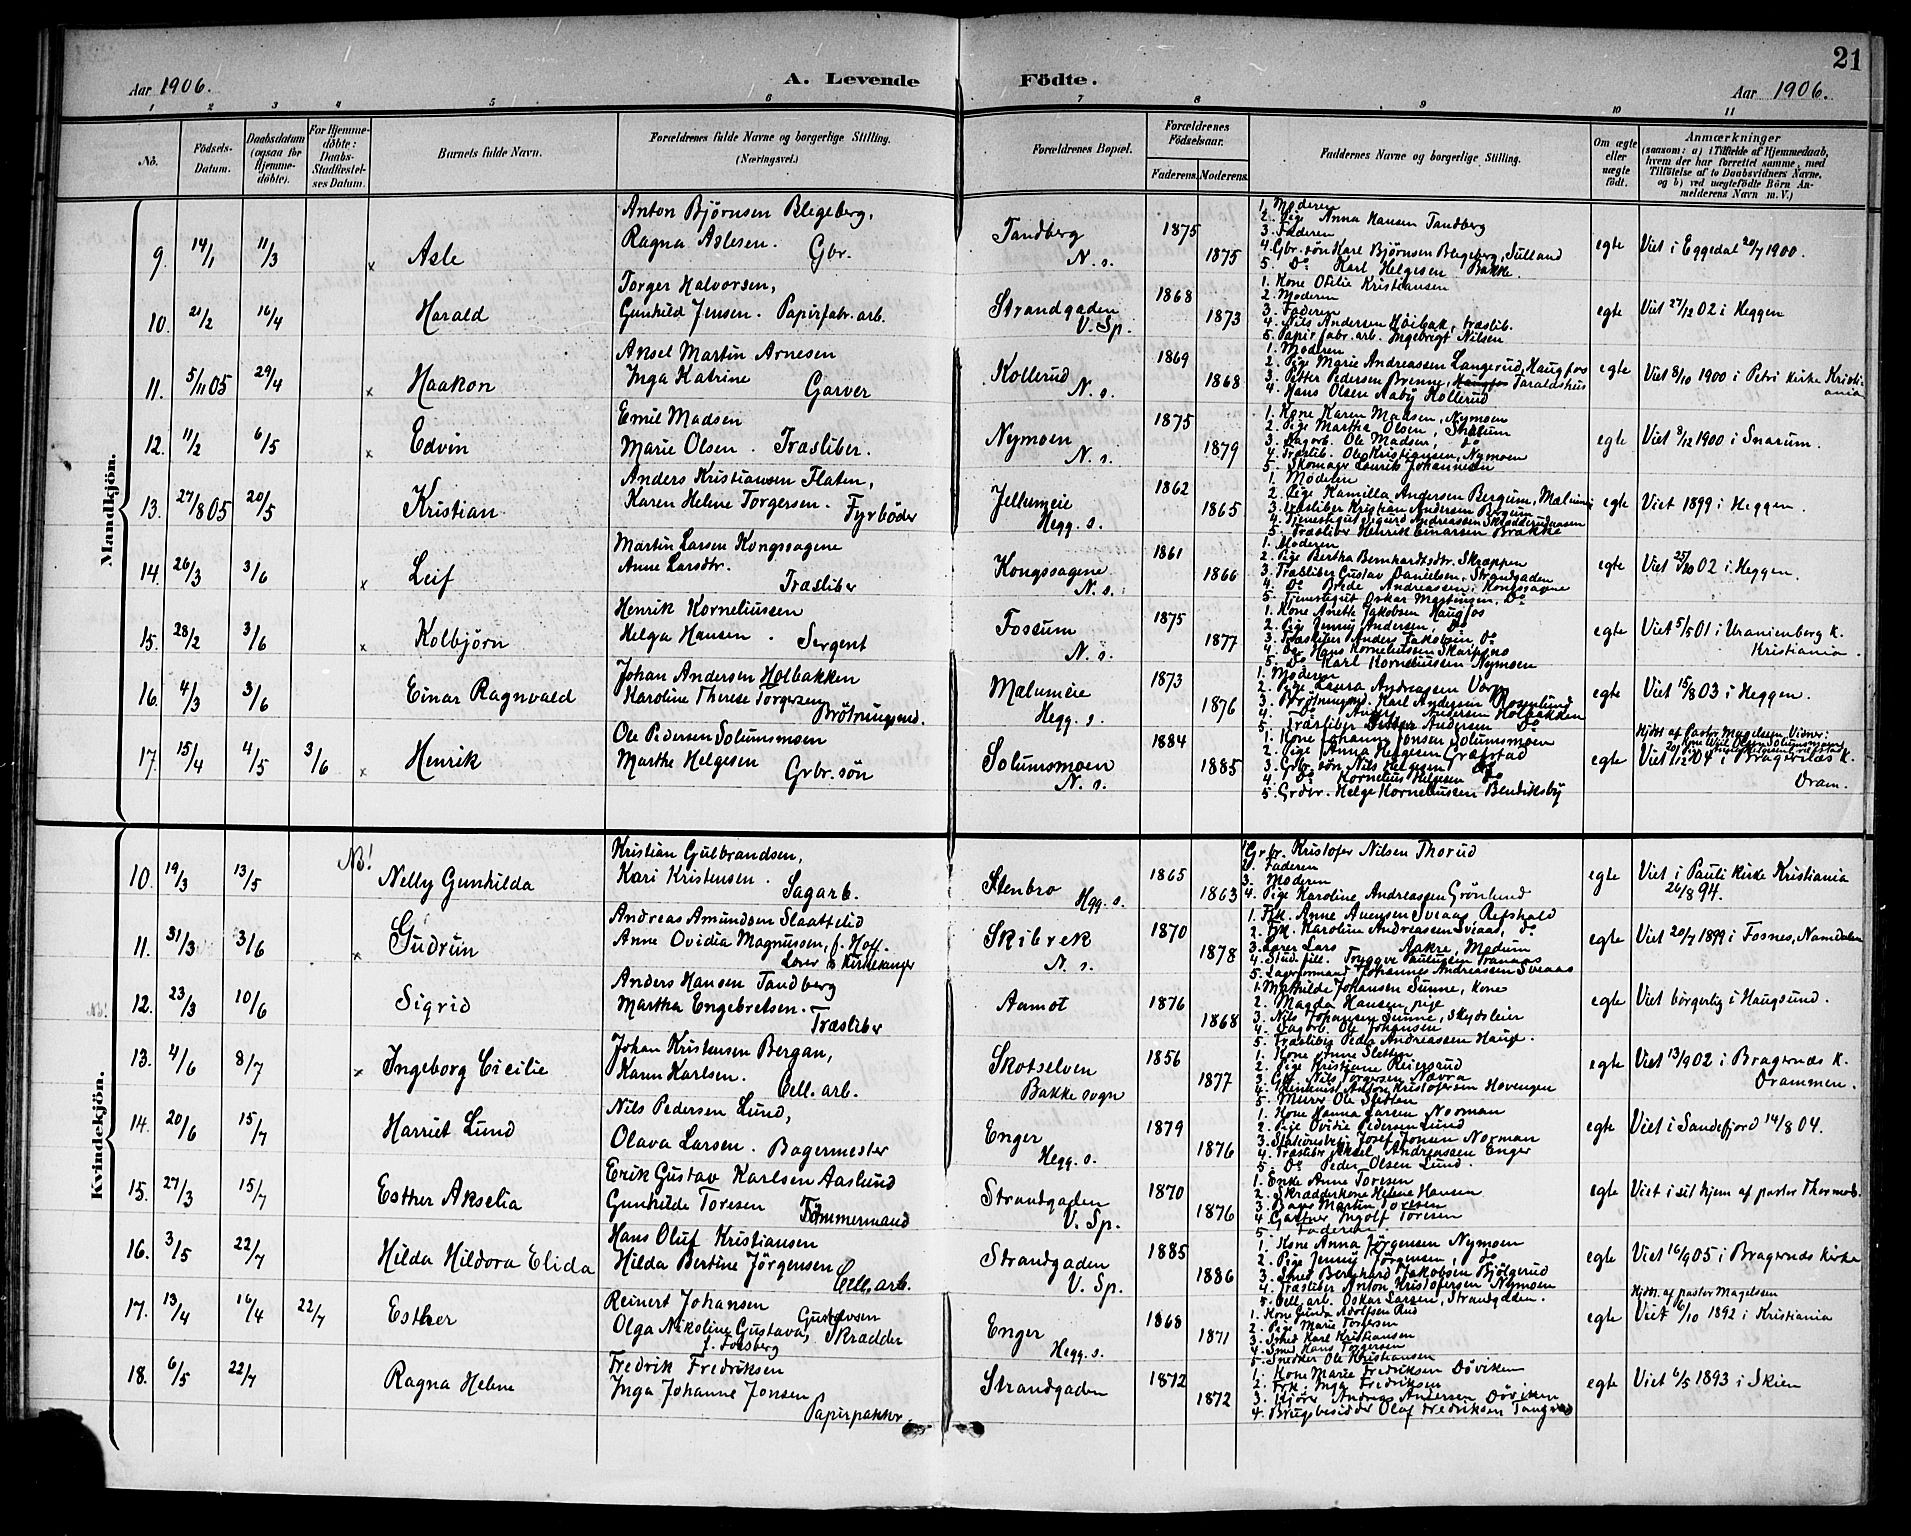 21
Aar 1906.
A. Levende Födte.
Aar 1906.
1 2 3 4 5 6 7 8 9 10 11
No.
Födsels-Datum.
Daabsdatum (ogsaa for Hjemme-döbte).
For Hjemme-döbte: Daabs-Stadfæstel-ses Datum.
Barnets fulde Navn.
Forældrenes fulde Navne og borgerlige Stilling. (Næringsvei.)
Forældrenes Bopæl.
Forældrenes Födselsaar.
Faderens. Moderens.
Faddernes Navne og borgerlige Stilling.
Om ægte eller uægte født.
Anmærkninger
(saasom: a) i Tilfælde af Hjemmedaab,
hvem der har forrettet samme, med
Tilföielse af to Daabsvidners Navne,
og b) ved uægtefödte Börn An-
melderens Navn m. V.)
Mandkjön.
9. 14/1 11/3 x Asle
Anton Björnsen Blegeberg,
Ragna Aslesen. Gbr.
Tandberg N. s. 1875 1875
1. Moderen
2. Pige Anna Hansen Tandberg
3. Faderen
4. Gbr. sön Karl Björnsen Blegeberg, Sulland
5. Do Karl Helgesen Bakke
egte Viet i Eggedal 20/7 1900.
10. 21/2 16/4 Harald
Torger Halvorsen,
Gunhild Jensen. Papirfabr. arb.
Strandgaden V. Sp. 1868 1873
1. Kone Otilie Kristiansen
2. Moderen
3. Faderen
4. Nils Andersen Höibak, træslib.
5. Papirfabr. arb. Ingebrigt Nilsen
egte Viet 27/12 02 i Heggen
11. 5/11 05 29/4 x Haakon
Aksel Martin Arnesen
Inga Katrine Garver
Kollerud N. s. 1869 1868
1. Moderen
2. Pige Marie Andreassen Langerud, Haugfos
3. Petter Pedersen Brenne, Haugfos Taraldshus
4. Hans Olsen Aaby Kollerud
egte Viet 8/10 1900 i Petri kirke Kristi-
ania
12. 11/2 6/5 x Edvin
Emil Madsen
Marie Olsen. Træsliber.
Nymoen N. s. 1875 1879
1. Kone Karen Madsen, Nymoen
2. Pige Martha Olsen,
3. Sagarb. Ole Madsen, do
4. Træslib. Ole Kristiansen, Nymoen
5. Skomager Laurik Johannesen
egte Viet 9/12 1900 i Snarum.
13. 27/8 05 20/5 Kristian
Anders Kristiansen Flaten,
Karen Helene Torgersen. Fyrböder
Jellumeie Hegg. s. 1862 1865
1. Moderen
2. Pige Kamilla Andersen Bergum,
3. Træsliber Kristian Andersen Bergum
4. Tjenestegut Sigurd Andreassen
5. Træsliber Henrik Einarsen Brakke
egte Viet 1899 i Heggen.
14. 26/3 3/6 x Leif
Martin Larsen Kongssagene
Anne Larsdtr. Træsliber
Kongssagene N. s. 1861 1866
1. Moderen
2. Pige Bertha Bernhardtsdtr. Skrappen
3. Træsliber Gustav Danielsen, Strandgaden
4. Do Brede Andreassen, Kongssagene
5. Tjenestegut Oskar Martinsen, Do
egte Viet 25/10 02 i Heggen.
15. 28/2 3/6 x Kolbjörn
Henrik Korneliussen
Helga Hansen. Sergent
Fossum N. s. 1875 1877
1. Kone Anette Jakobsen Haugfos
2. Pige Jenny Andersen, Do
3. Træsliber Anders Jakobsen, Do
4. Do Hans Korneliussen
5. Do Karl Korneliussen Nymoen
egte Viet 5/5 01 i Uranienberg k.
Kristiania.
16. 4/3 3/6 Einar Ragnvald
Johan Andersen Holbakken
Karoline Therese Torgersen
Brötningsmd.
Malumeie Hegg. s. 1873 1876
1. Moderen
2. Pige Laura Andreassen
3. Brötningsmd. Karl Andersen Rosenlund
4. Do Anders Andersen Holbakken
5. Træsliber Andersen Do
egte Viet 15/8 03 i Heggen.
17. 15/4 4/5 3/6 x Henrik
Ole Pedersen Solumsmoen
Marthe Helgesen Grbr. sön
Solumsmoen N. s. 1884 1885
1. Kone Johanne Jonsen Solumsmoen
2. Pige Anna Helgesen Grafstad
3. Grbr. sön Nils Helgesen Do
4. Do Kornelius Helgesen Do
5. Grdbr. Helge Korneliussen Bendiksby
egte Hjdbt. af Pastor Magelsen Vidner:
Viet 20/12 04 i Bragernæs K.
Dram.
Kvindekjön.
10. 19/3 13/5 NB! Nelly Gunhilda
Kristian Gulbrandsen,
Kari Kristensen. Sagarb.
Stenbro Hgg. s. 1865 1863
1. Grbr. Kristofer Nilsen Thorud
2. Faderen
3. Moderen
4. Pige Karoline Andreassen Grönlund
egte Viet i Pauli Kirke Kristiania
26/8 94.
11. 31/3 3/6 x Gudrun
Andreas Amundsen Slaattelid
Anne Ovidia Magnussen, f. Hoff.
Lærer & Kirkesanger
Skibrek N. s. 1870 1878
1. Frk. Anne Auensen Sveaas, Refshald
2. Frk. Karoline Andreassen Sveaas, do
3. Lærer Lars Aakre, Modum
4. Stud. fil. Tryggve Paulusen Tranaas
5. Lagerformand Johannes Andreassen Sveaas
egte Viet 20/7 1899 i Fosnes, Namdalen
NB! 12. 23/3 10/6 Sigrid
Anders Hansen Tandberg
Martha Engebretsen. Træsliber
Aamot 1876 1868
1. Mathilde Johansen Sunne, kone
2. Magda Hansen, pige
3. Nils Johansen Sunne, Skydsleier
4. Sagarb. Ole Johansen
5. Træslibe Peder Andreassen Haugf.
egte Viet borgerlig i Haugsund.
13. 4/6 8/7 x Ingeborg Cicilie
Johan Kristensen Bergan,
Karen Karlsen. Cell. arb.
Skotselven Bakke sogn 1856 1877
1. Kone Anne Sletten
2. Pige Kristiane Reiersrud
3. Gbr. Nils Torgersen Nævra
4. Anton Kristofersen Hovengen
5. Murer Ole Slettan
egte Viet 13/9 02 i Bragernæs K.
Drammen.
14. 20/6 15/7 Harriet Lund
Nils Pedersen Lund,
Olava Larsen. Bagermester
Enger Hegg. s. 1879 1876
1. Kone Hanna Larsen Norman
2. Pige Ovidie Pedersen Lund
3. Stationsbetj. Josef Jonsen Norman
4. Træsliber Aksel Andreassen Enger
5. Do Peder Olsen Lund.
egte Viet i Sandefjord 14/8 04.
15. 27/3 15/7 Esther Akselia
Erik Gustav Karlsen Aaslund
Gunhilde Toresen Tömmermand
Strandgaden V. Sp. 1870 1876
1. Enke Anne Toresen
2. Skrædderkone Helene Hansen
3. Bager Martin Toresen
4. Gartner Ingolf Toresen
5. Faderen
egte Viet i sit hjem af pastor Thormods.
16. 3/5 22/7 Hilda Hildora Elida
Hans Oluf Kristiansen
Hilda Bertine Jörgensen
Cell. arb.
Strandgaden V. Sp. 1885 1886
1. Kone Anna Jörgensen Nymoen
2. Pige Jenny Jörgensen, do
3. Smed Bernhard Jakobsen Bjölgerud
4. Træsliber Anton Kristofersen Nymoen
5. Cell. arb. Oskar Larsen, Strandgaden.
egte Viet 16/9 05 i Bragernæs Kirke
17. 13/4 16/4 22/7 Esther
Reinert Johansen Gustavsen
Olga Nikoline Gustava, Skrædder
f. Forsberg
Enger Hegg. s. 1868 1871
1. Kone Gunda Adolfsen Rud
2. Pige Marie Toresen
3. Smed Karl Kristiansen
4. Smed Hans Torgersen
5. Snedker Ole Kristiansen
egte Hjdbt. af pastor Magelsen
Viet 6/10 1892 i Kristiania
18. 6/5 22/7 Ragna Helene
Fredrik Fredriksen
Inga Johanne Jonsen
Papirpakker.
Strandgaden 1872 1872
1. Kone Marie Fredriksen Döviken
2. Frk. Inga Fredriksen
3. Kjörer Andreas Andersen Döviken
4. Brugsbesidder Olaf Fredriksen
egte Viet 6/5 1893 i Skien